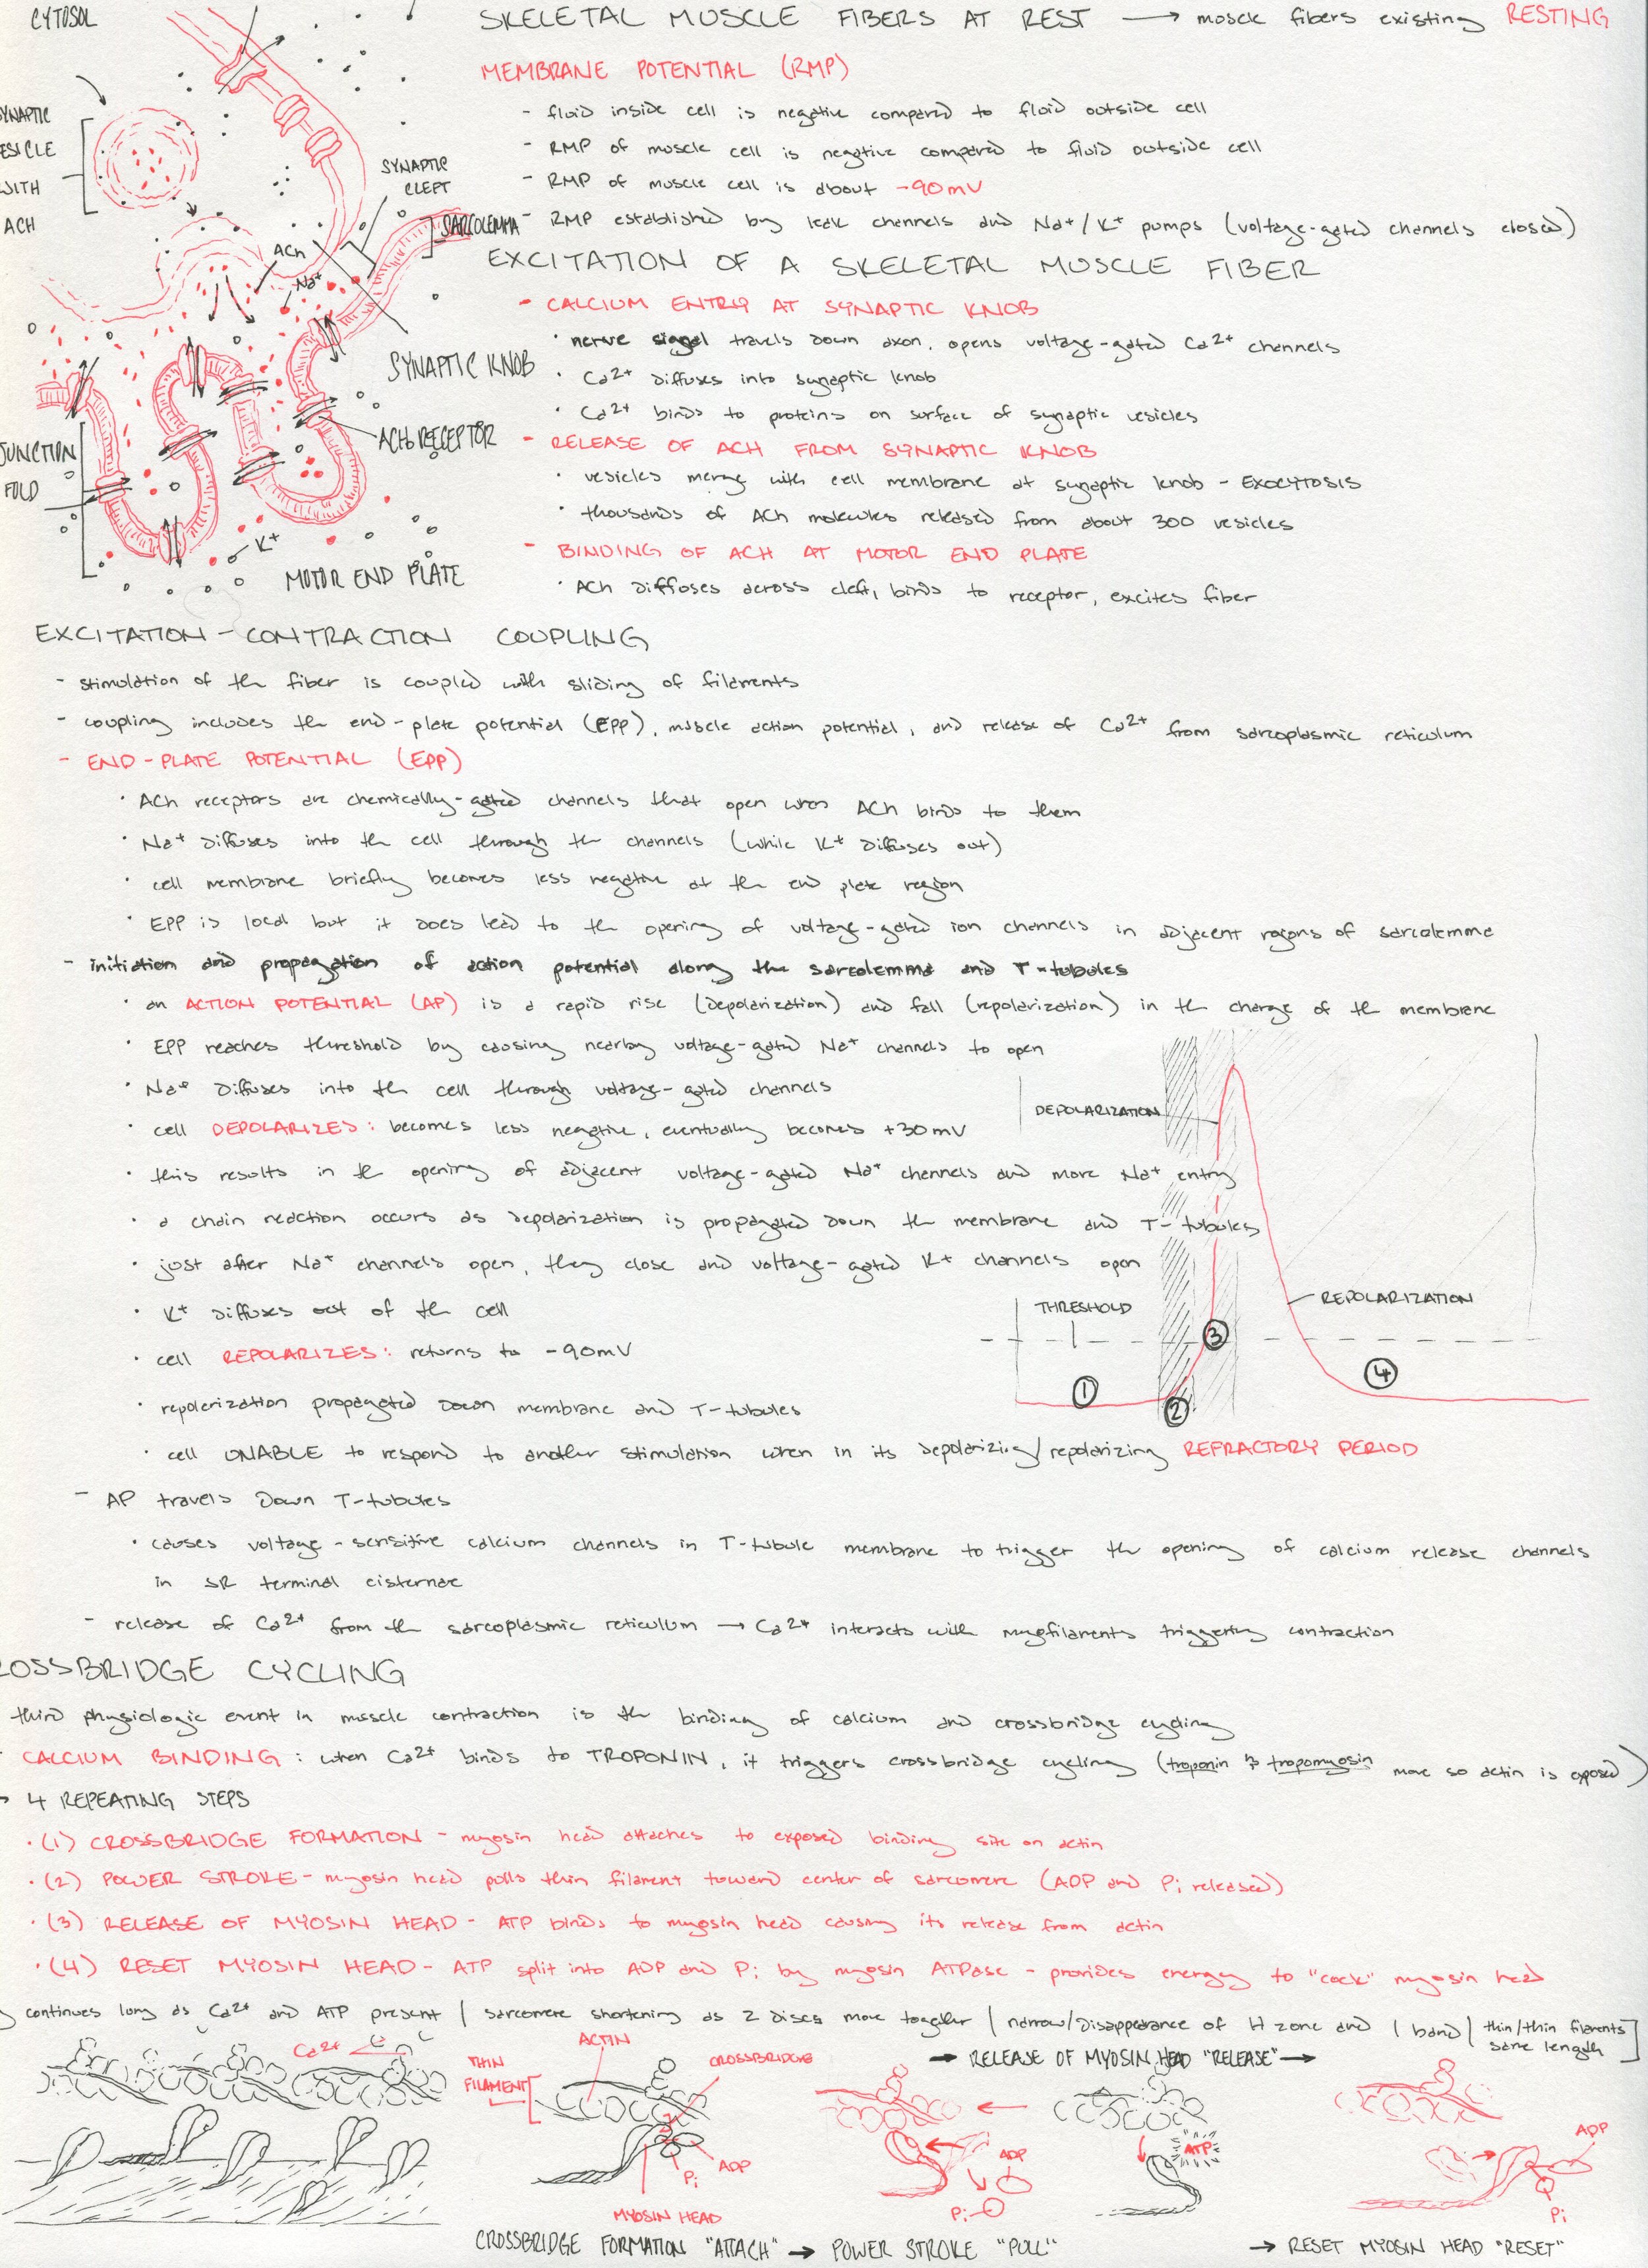 CYTOSOL
SYNAPTIC
VESICLE
WITH
ACH
SYNAPTIC
CLEFT
SARCOLEMMA
ACh
Na+
SYNAPTIC KNOB
ACh RECEPTOR
JUNCTION
FOLD
K+
MOTOR END PLATE
SKELETAL MUSCLE FIBERS AT REST → muscle fibers existing RESTING
MEMBRANE POTENTIAL (RMP)
- fluid inside cell is negative compared to fluid outside cell
- RMP of muscle cell is negative compared to fluid outside cell
- RMP of muscle cell is about -90mV
- RMP established by leak channels and Na+/K+ pumps (voltage-gated channels closed)
EXCITATION OF A SKELETAL MUSCLE FIBER
- CALCIUM ENTRY AT SYNAPTIC KNOB
· nerve signal travels down axon, opens voltage-gated Ca2+ channels
· Ca2+ diffuses into synaptic knob
· Ca2+ binds to proteins on surface of synaptic vesicles
- RELEASE OF ACH FROM SYNAPTIC KNOB
· vesicles merge with cell membrane at synaptic knob - EXOCYTOSIS
· thousands of ACh molecules released from about 300 vesicles
- BINDING OF ACH AT MOTOR END PLATE
· ACh diffuses across cleft, binds to receptor, excites fiber
EXCITATION-CONTRACTION COUPLING
- stimulation of the fiber is coupled with sliding of filaments
- coupling includes the end-plate potential (EPP), muscle action potential, and release of Ca2+ from sarcoplasmic reticulum
- END-PLATE POTENTIAL (EPP)
· ACh receptors are chemically-gated channels that open when ACh binds to them
· Na+ diffuses into the cell through the channels (while K+ diffuses out)
· cell membrane briefly becomes less negative at the end plate region
· EPP is local but it does lead to the opening of voltage-gated ion channels in adjacent regions of sarcolemma
- initiation and propagation of action potential along the sarcolemma and T-tubules
· an ACTION POTENTIAL (AP) is a rapid rise (depolarization) and fall (repolarization) in the charge of the membrane
· EPP reaches threshold by causing nearby voltage-gated Na+ channels to open
· Na+ diffuses into the cell through voltage-gated channels
· cell DEPOLARIZES: becomes less negative, eventually becomes +30mV
· this results in the opening of adjacent voltage-gated Na+ channels and more Na+ entry
· a chain reaction occurs as depolarization is propagated down the membrane and T-tubules
· just after Na+ channels open, they close and voltage-gated K+ channels open
· K+ diffuses out of the cell
· cell REPOLARIZES: returns to -90mV
· repolarization propagated down membrane and T-tubules
· cell UNABLE to respond to another stimulation when in its depolarizing/repolarizing REFRACTORY PERIOD
DEPOLARIZATION
THRESHOLD
REPOLARIZATION
1
2
3
4
- AP travels down T-tubules
· causes voltage-sensitive calcium channels in T-tubule membrane to trigger the opening of calcium release channels
in SR terminal cisternae
- release of Ca2+ from the sarcoplasmic reticulum → Ca2+ interacts with myofilaments triggering contraction
ROSSBRIDGE CYCLING
third physiologic event in muscle contraction is the binding of calcium and crossbridge cycling
CALCIUM BINDING: when Ca2+ binds to TROPONIN, it triggers crossbridge cycling (troponin & tropomyosin move so actin is exposed)
4 REPEATING STEPS
· (1) CROSSBRIDGE FORMATION - myosin head attaches to exposed binding site on actin
· (2) POWER STROKE - myosin head pulls thin filament toward center of sarcomere (ADP and Pi released)
· (3) RELEASE OF MYOSIN HEAD - ATP binds to myosin head causing its release from actin
· (4) RESET MYOSIN HEAD - ATP split into ADP and Pi by myosin ATPase - provides energy to "cock" myosin head
continues long as Ca2+ and ATP present / sarcomere shortening as Z discs move together / narrow/disappearance of H zone and I band / thin/thin filaments
same length
Ca2+
THIN
FILAMENT
ACTIN
CROSSBRIDGE
Pi
ADP
MYOSIN HEAD
CROSSBRIDGE FORMATION "ATTACH" → POWER STROKE "PULL"
ADP
Pi
→ RELEASE OF MYOSIN HEAD "RELEASE" →
ATP
ADP
Pi
→ RESET MYOSIN HEAD "RESET"